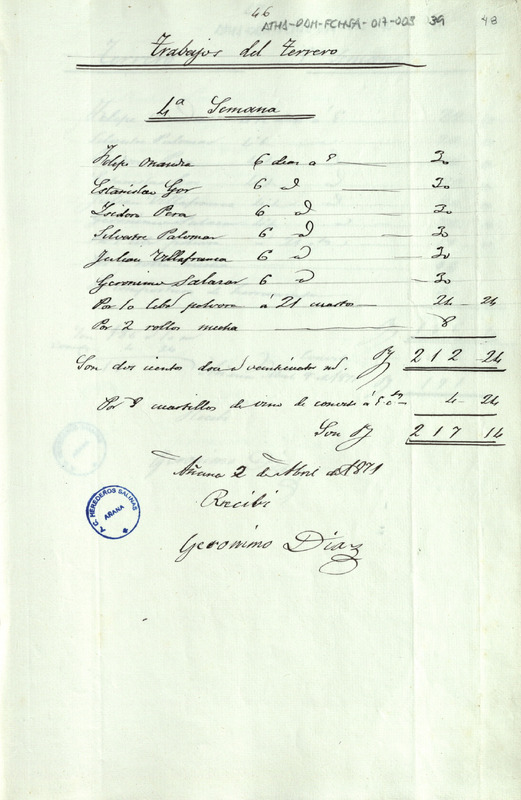 46
ATHA-DAH-FCHSA-017-003 39 48
Trabajos del Terrero
4ª Semana
Felipe 6 dias a 8 30
Estanislao Gor 6 d 30
Isidora Pera 6 d 30
Silvestre Palomar 6 d 30
Julian Villafranca 6 d 30
Geronimo Salazar 6 d 30
Por 10 libs polvora á 21 cuartos 24 - 24
Por 2 rollos mecha 8
Son dos cientos doce y veinticuatro ms. 212 24
Por 8 cuartillos de vino de convite á 5 4 - 24
Son 217 14
Añana 2 de Abril de 1871
Recibi
Geronimo Diaz
A. C. HEREDEROS SALINAS
AÑANA